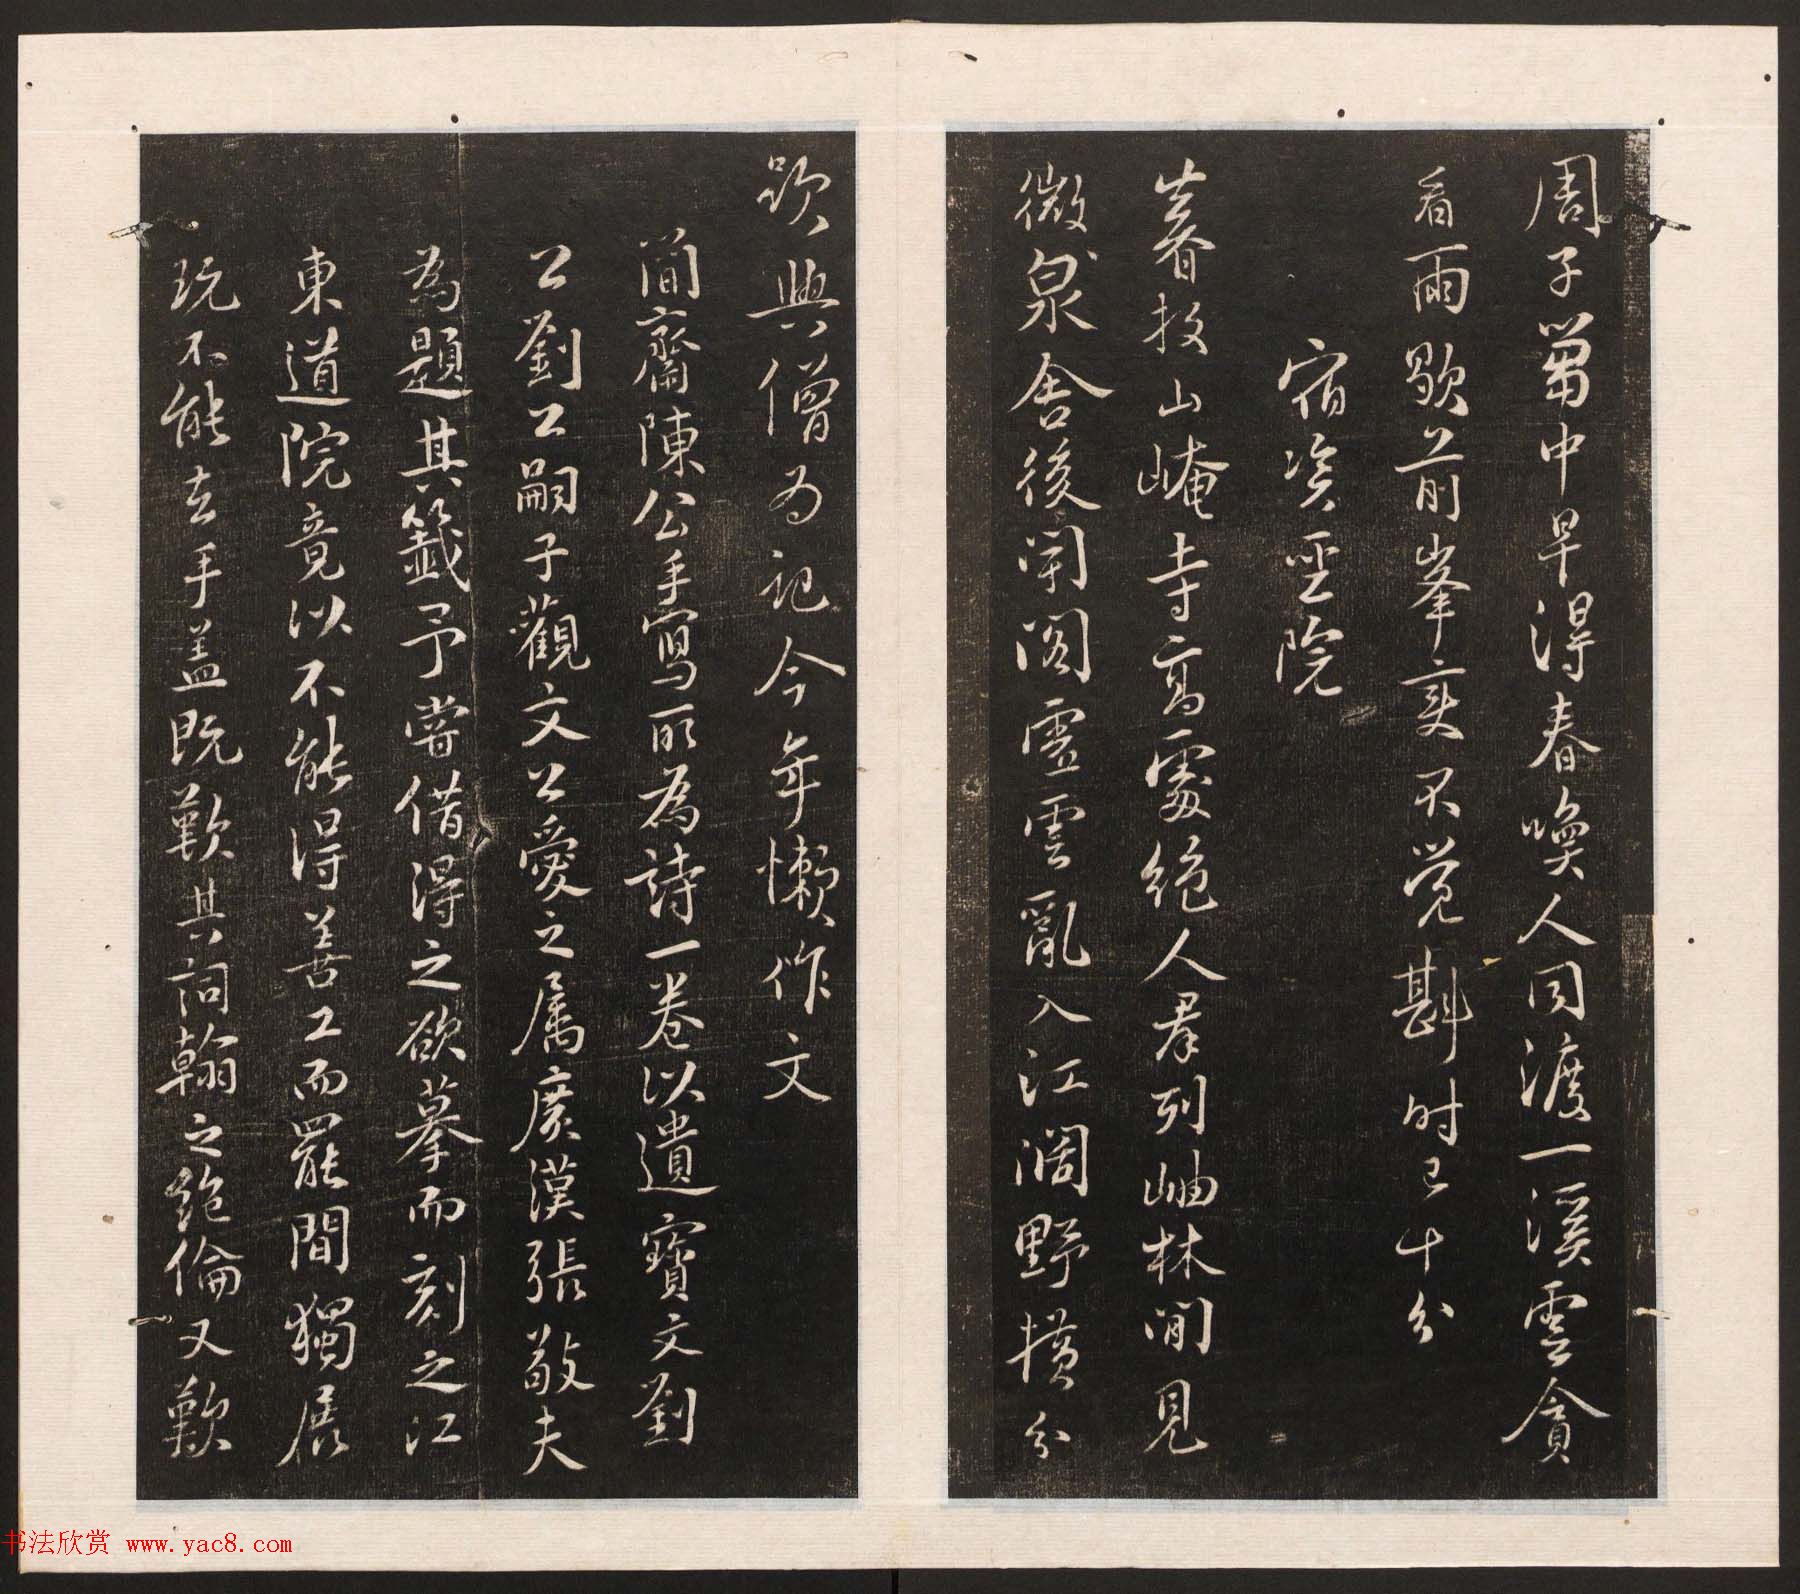 周子中早得春喚人同渡一溪雲貪
看雨歇前峯變不覺斟時已十分
宿資聖院
暮投山崦寺高處絕人羣列岫林間見
微泉舍後聞閣虛雲亂入江闊野橫分
欲與僧為記今年懶作文
簡齋陳公手寫所為詩一卷以遺寶文劉
公劉公嗣子觀文公愛之屬廣漢張敬夫
為題其籤予嘗借得之欲摹而刻之江
東道院竟以不能得善工而罷間獨展
玩不能去手盖既歎其詞翰之絕倫又歎
书法欣赏 www.yac8.com